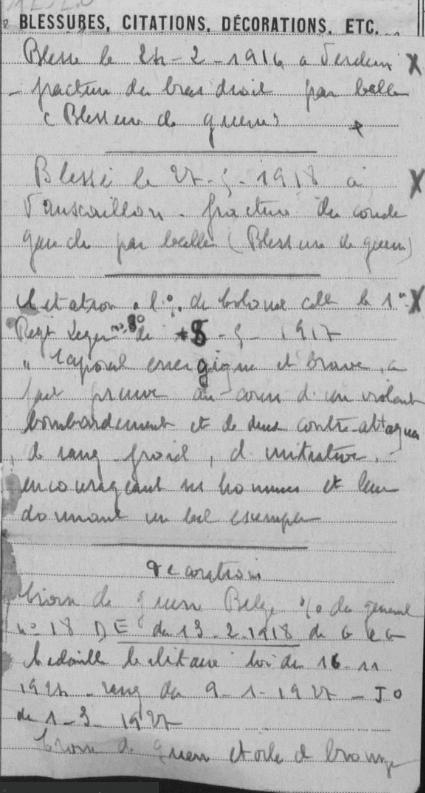 BLESSURES, CITATIONS, DÉCORATIONS, ETC.
Blessé le 24-2-1916 a Verdun X
fracture du bras droit par balle
(Blessure de guerre)
Blessé le 27-5-1918 a X
Vauxaillon. fracture du coude
gauche par balle (Blessure de guerre)
Citation a l'o/. de le 1er X
Regt n° 8 de +8-5-1917
"Caporal energique et brave, a
fait preuve au cours d'un violent
bombardement et de deux contre-attaques
de sang froid, d'initiative.
encourageant ses hommes et leur
donnant un bel exemple
Décorations
Croix de guerre Belge o/o du général
n° 18 DE du 13-2-1918 de G Q G
Médaille Militaire loi du 16-11
rang du 9-1-1927 - JO
du 1-3-1927
Croix de guerre etoile de bronze